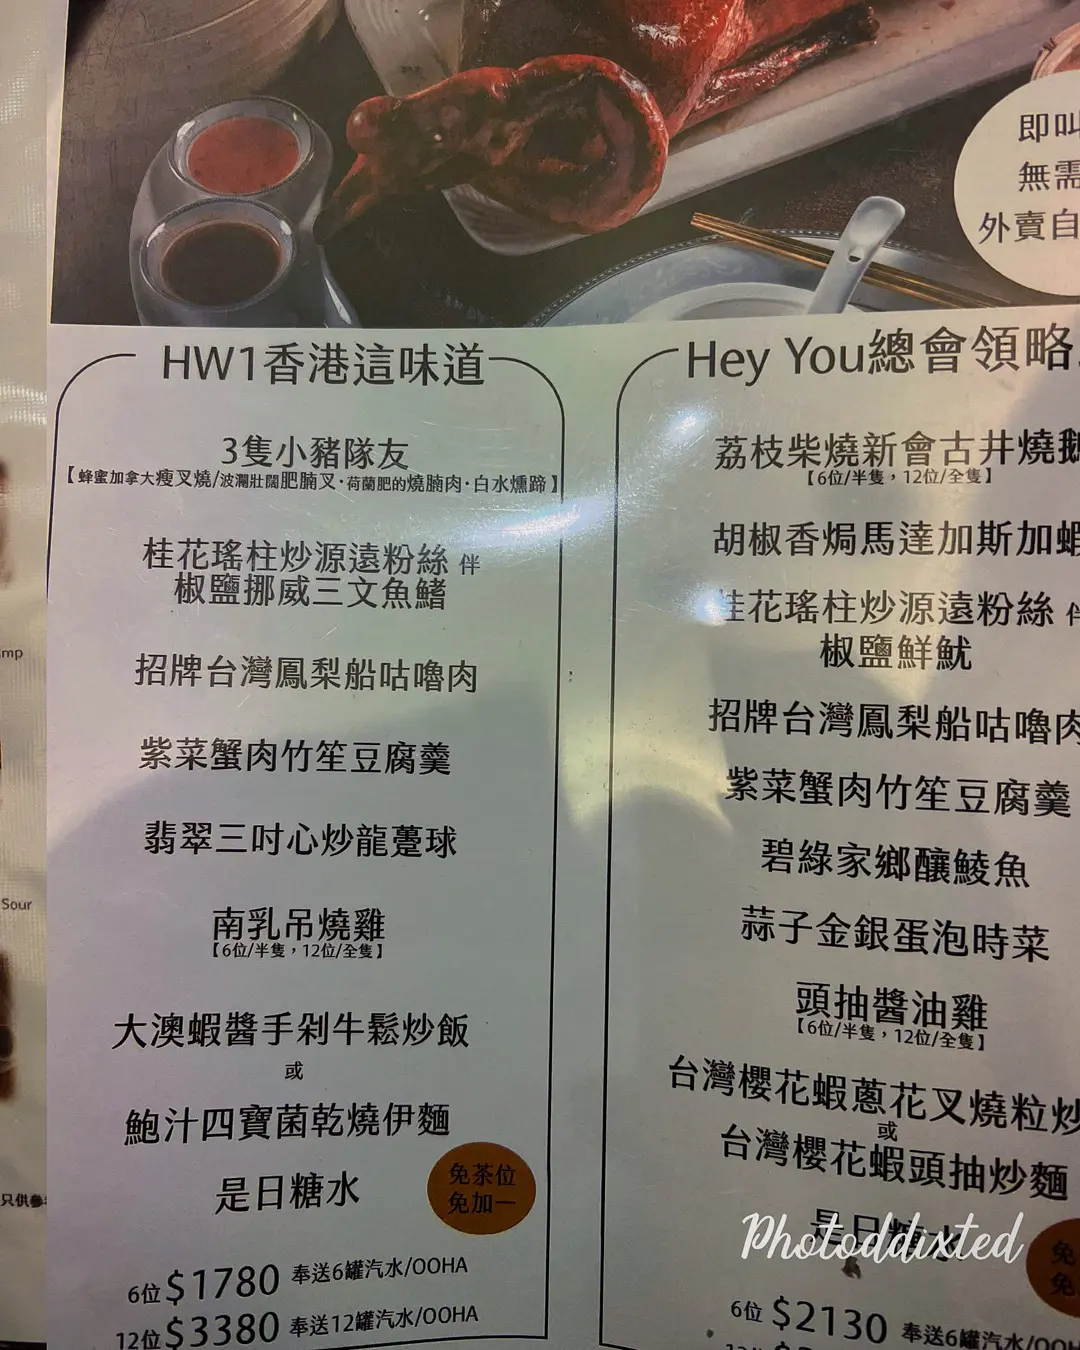 即叫
無需
外賣自
HW1香港這味道
3隻小豬隊友
【蜂蜜加拿大瘦叉燒/波瀾壯闊肥腩叉·荷蘭肥的燒腩肉·白水燻蹄】
桂花瑤柱炒源遠粉絲 伴
椒鹽挪威三文魚鰭
招牌台灣鳳梨船咕嚕肉
紫菜蟹肉竹笙豆腐羹
翡翠三吋心炒龍躉球
南乳吊燒雞
【6位/半隻，12位/全隻】
大澳蝦醬手剁牛鬆炒飯
或
鮑汁四寶菌乾燒伊麵
是日糖水
免茶位
免加一
6位 $1780 奉送6罐汽水/OOHA
12位 $3380 奉送12罐汽水/OOHA
Hey You總會領略
荔枝柴燒新會古井燒鵝
【6位/半隻，12位/全隻】
胡椒香焗馬達加斯加蝦
桂花瑤柱炒源遠粉絲 伴
椒鹽鮮魷
招牌台灣鳳梨船咕嚕肉
紫菜蟹肉竹笙豆腐羹
碧綠家鄉釀鯪魚
蒜子金銀蛋泡時菜
頭抽醬油雞
【6位/半隻，12位/全隻】
台灣櫻花蝦蔥花叉燒粒炒
或
台灣櫻花蝦頭抽炒麵
是日糖水
免
免
6位 $2130 奉送6罐汽水/OOH
12位
mp
Sour
只供參
Photoddixted